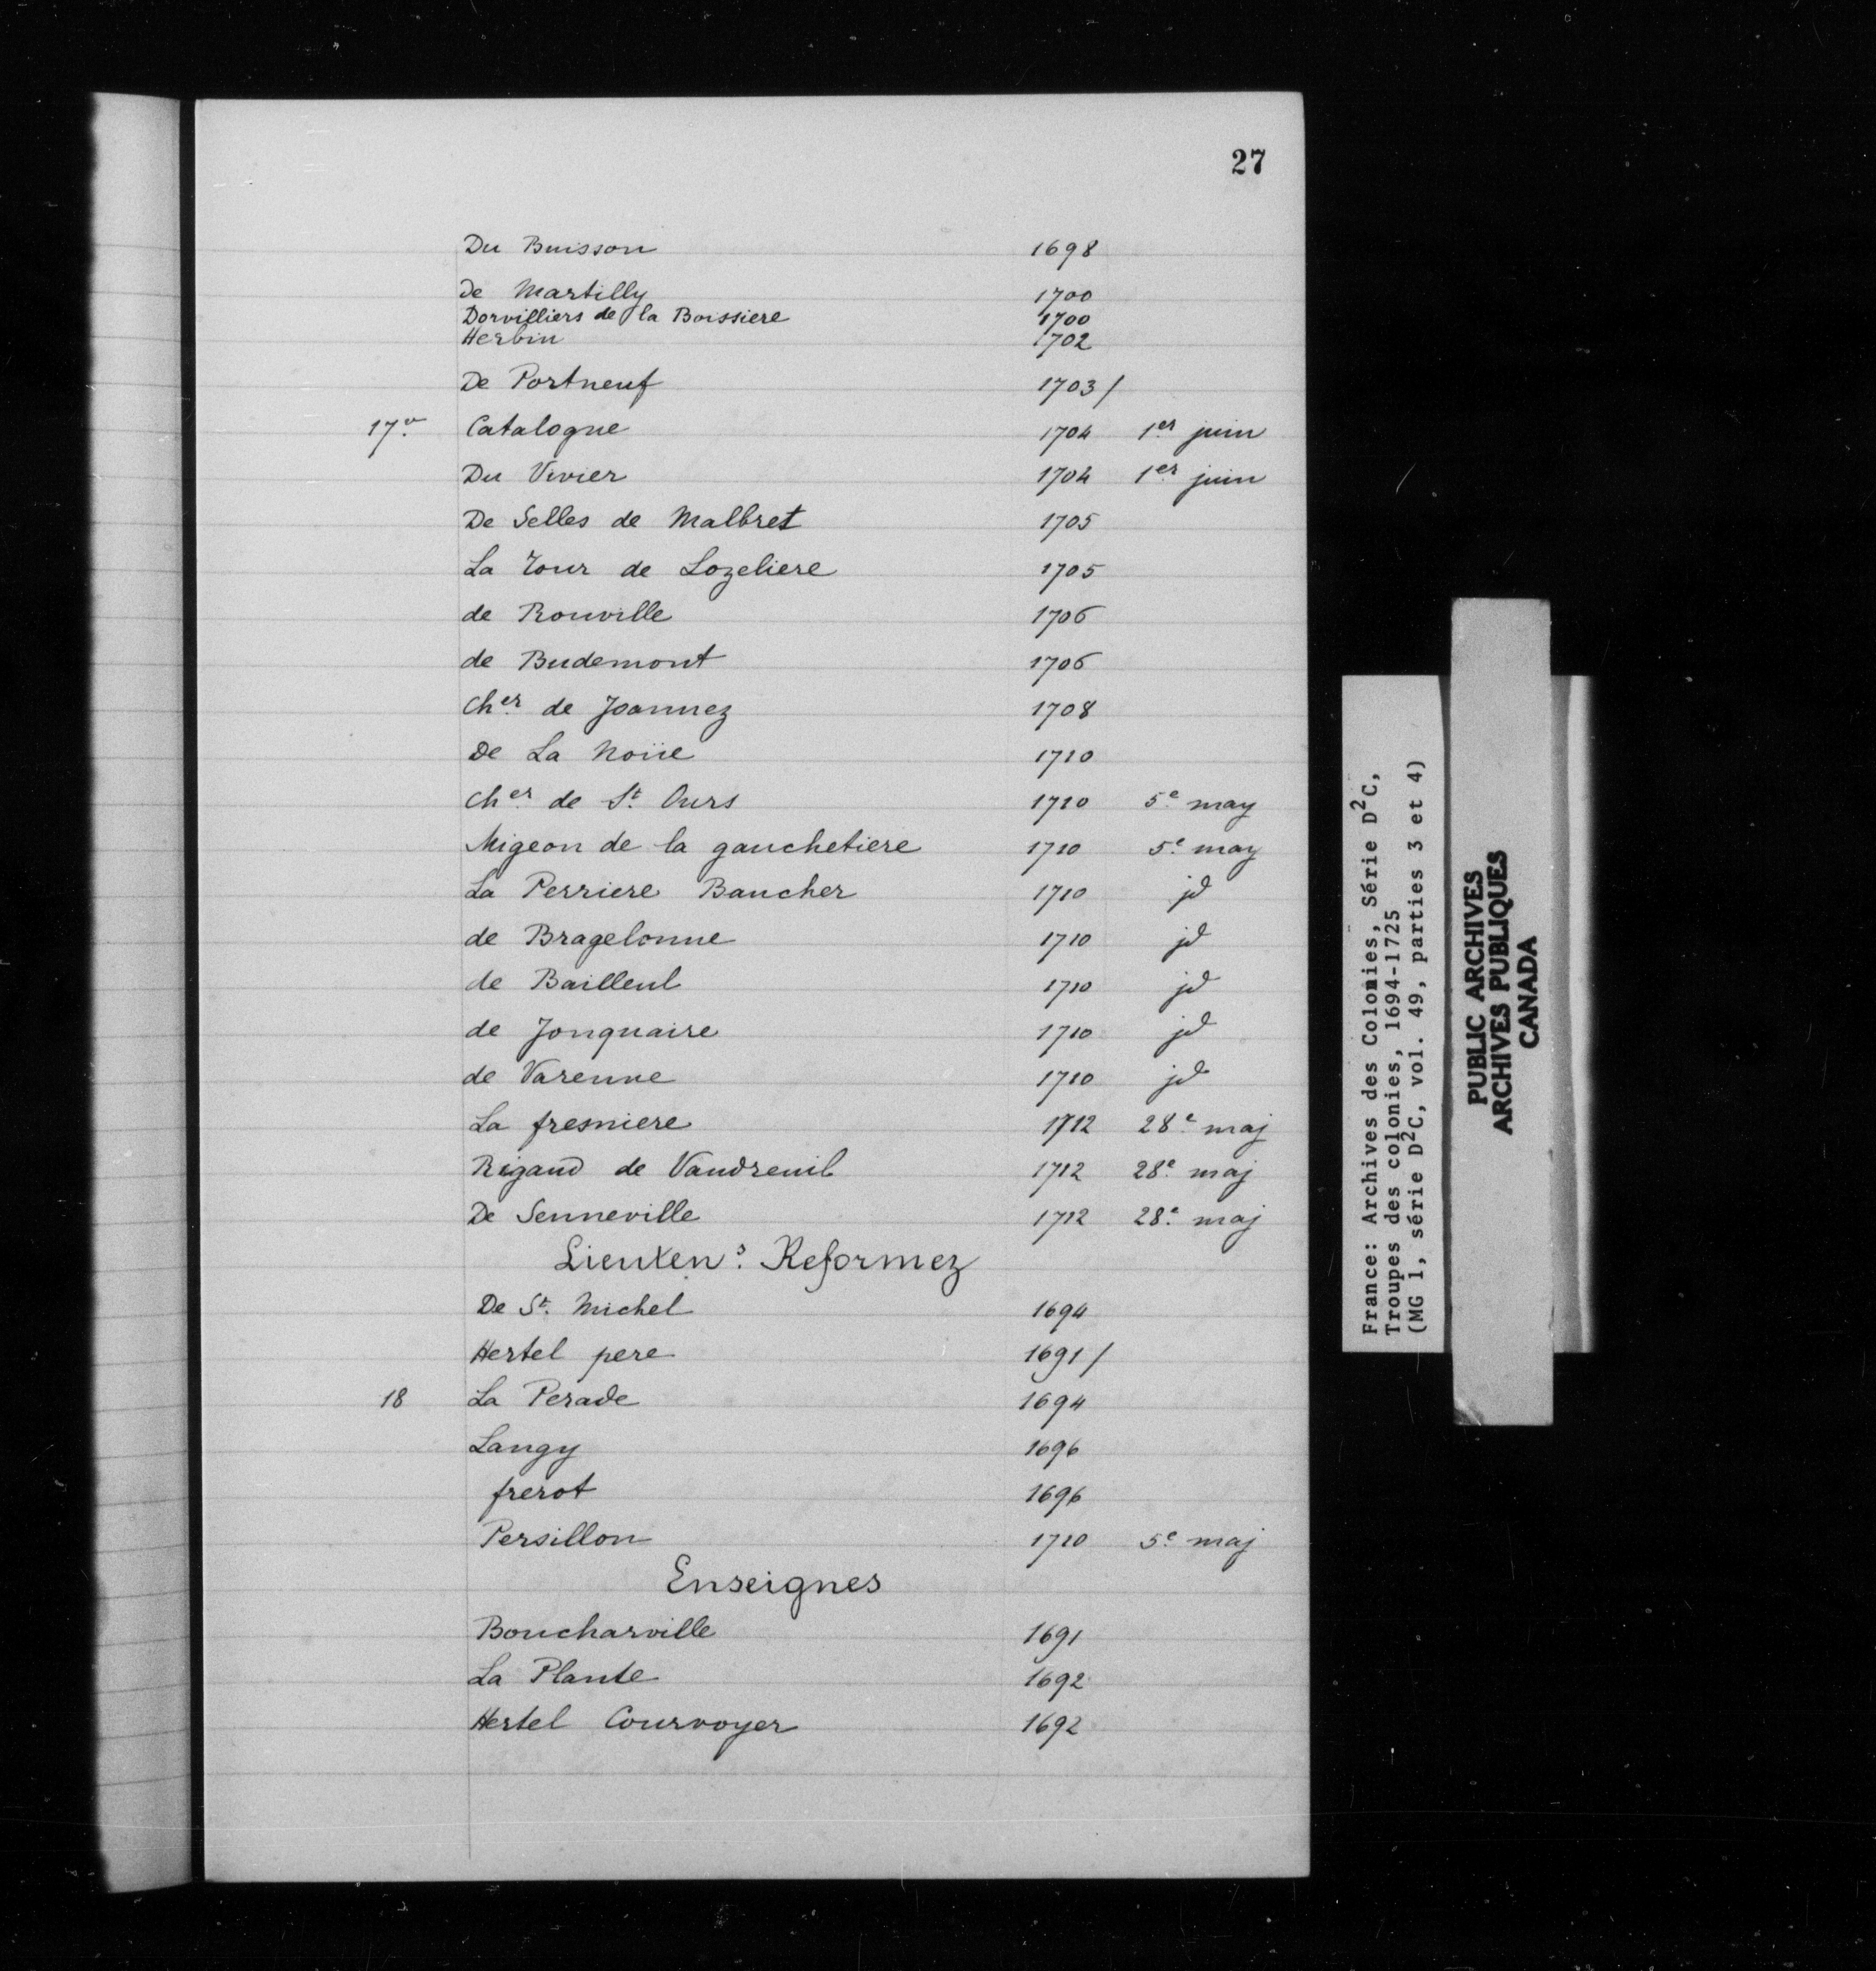 27
Du Buisson 1698
De Martilly 1700
Dorvilliers de la Boissiere 1700
Herbin 1702
De Portneuf 1703 /
17.v Catalogne 1704 1er juin
Du Vivier 1704 1er juin
De Selles de Malbret 1705
La Tour de Lozeliere 1705
de Rouville 1706
de Budemont 1706
Cher de Joannez 1708
De La Noüe 1710
Cher de St. Ours 1710 5e may
Migeon de la gauchetiere 1710 5e may
La Perriere Baucher 1710 jd
de Bragelonne 1710 jd
de Bailleul 1710 jd
de Jonquaire 1710 jd
de Varenne 1710 jd
La fresniere 1712 28e maj
Rigaud de Vaudreuil 1712 28e maj
De Senneville 1712 28e maj
Lieuten.s Reformez
De St. Michel 1694
Hertel pere 1691 /
18 La Perade 1694
Langy 1696
frerot 1696
Persillon 1710 5e maj
Enseignes
Boucharville 1691
La Plante 1692
Hertel Courvoyer 1692
France: Archives des Colonies, Série D2C,
Troupes des colonies, 1694-1725
(MG 1, série D2C, vol. 49, parties 3 et 4)
PUBLIC ARCHIVES
ARCHIVES PUBLIQUES
CANADA